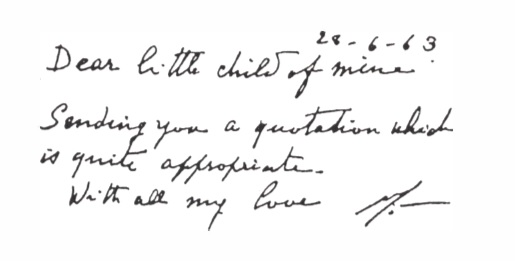 28-6-63
Dear little child of mine
Sending you a quotation which
is quite appropriate.
With all my love M.